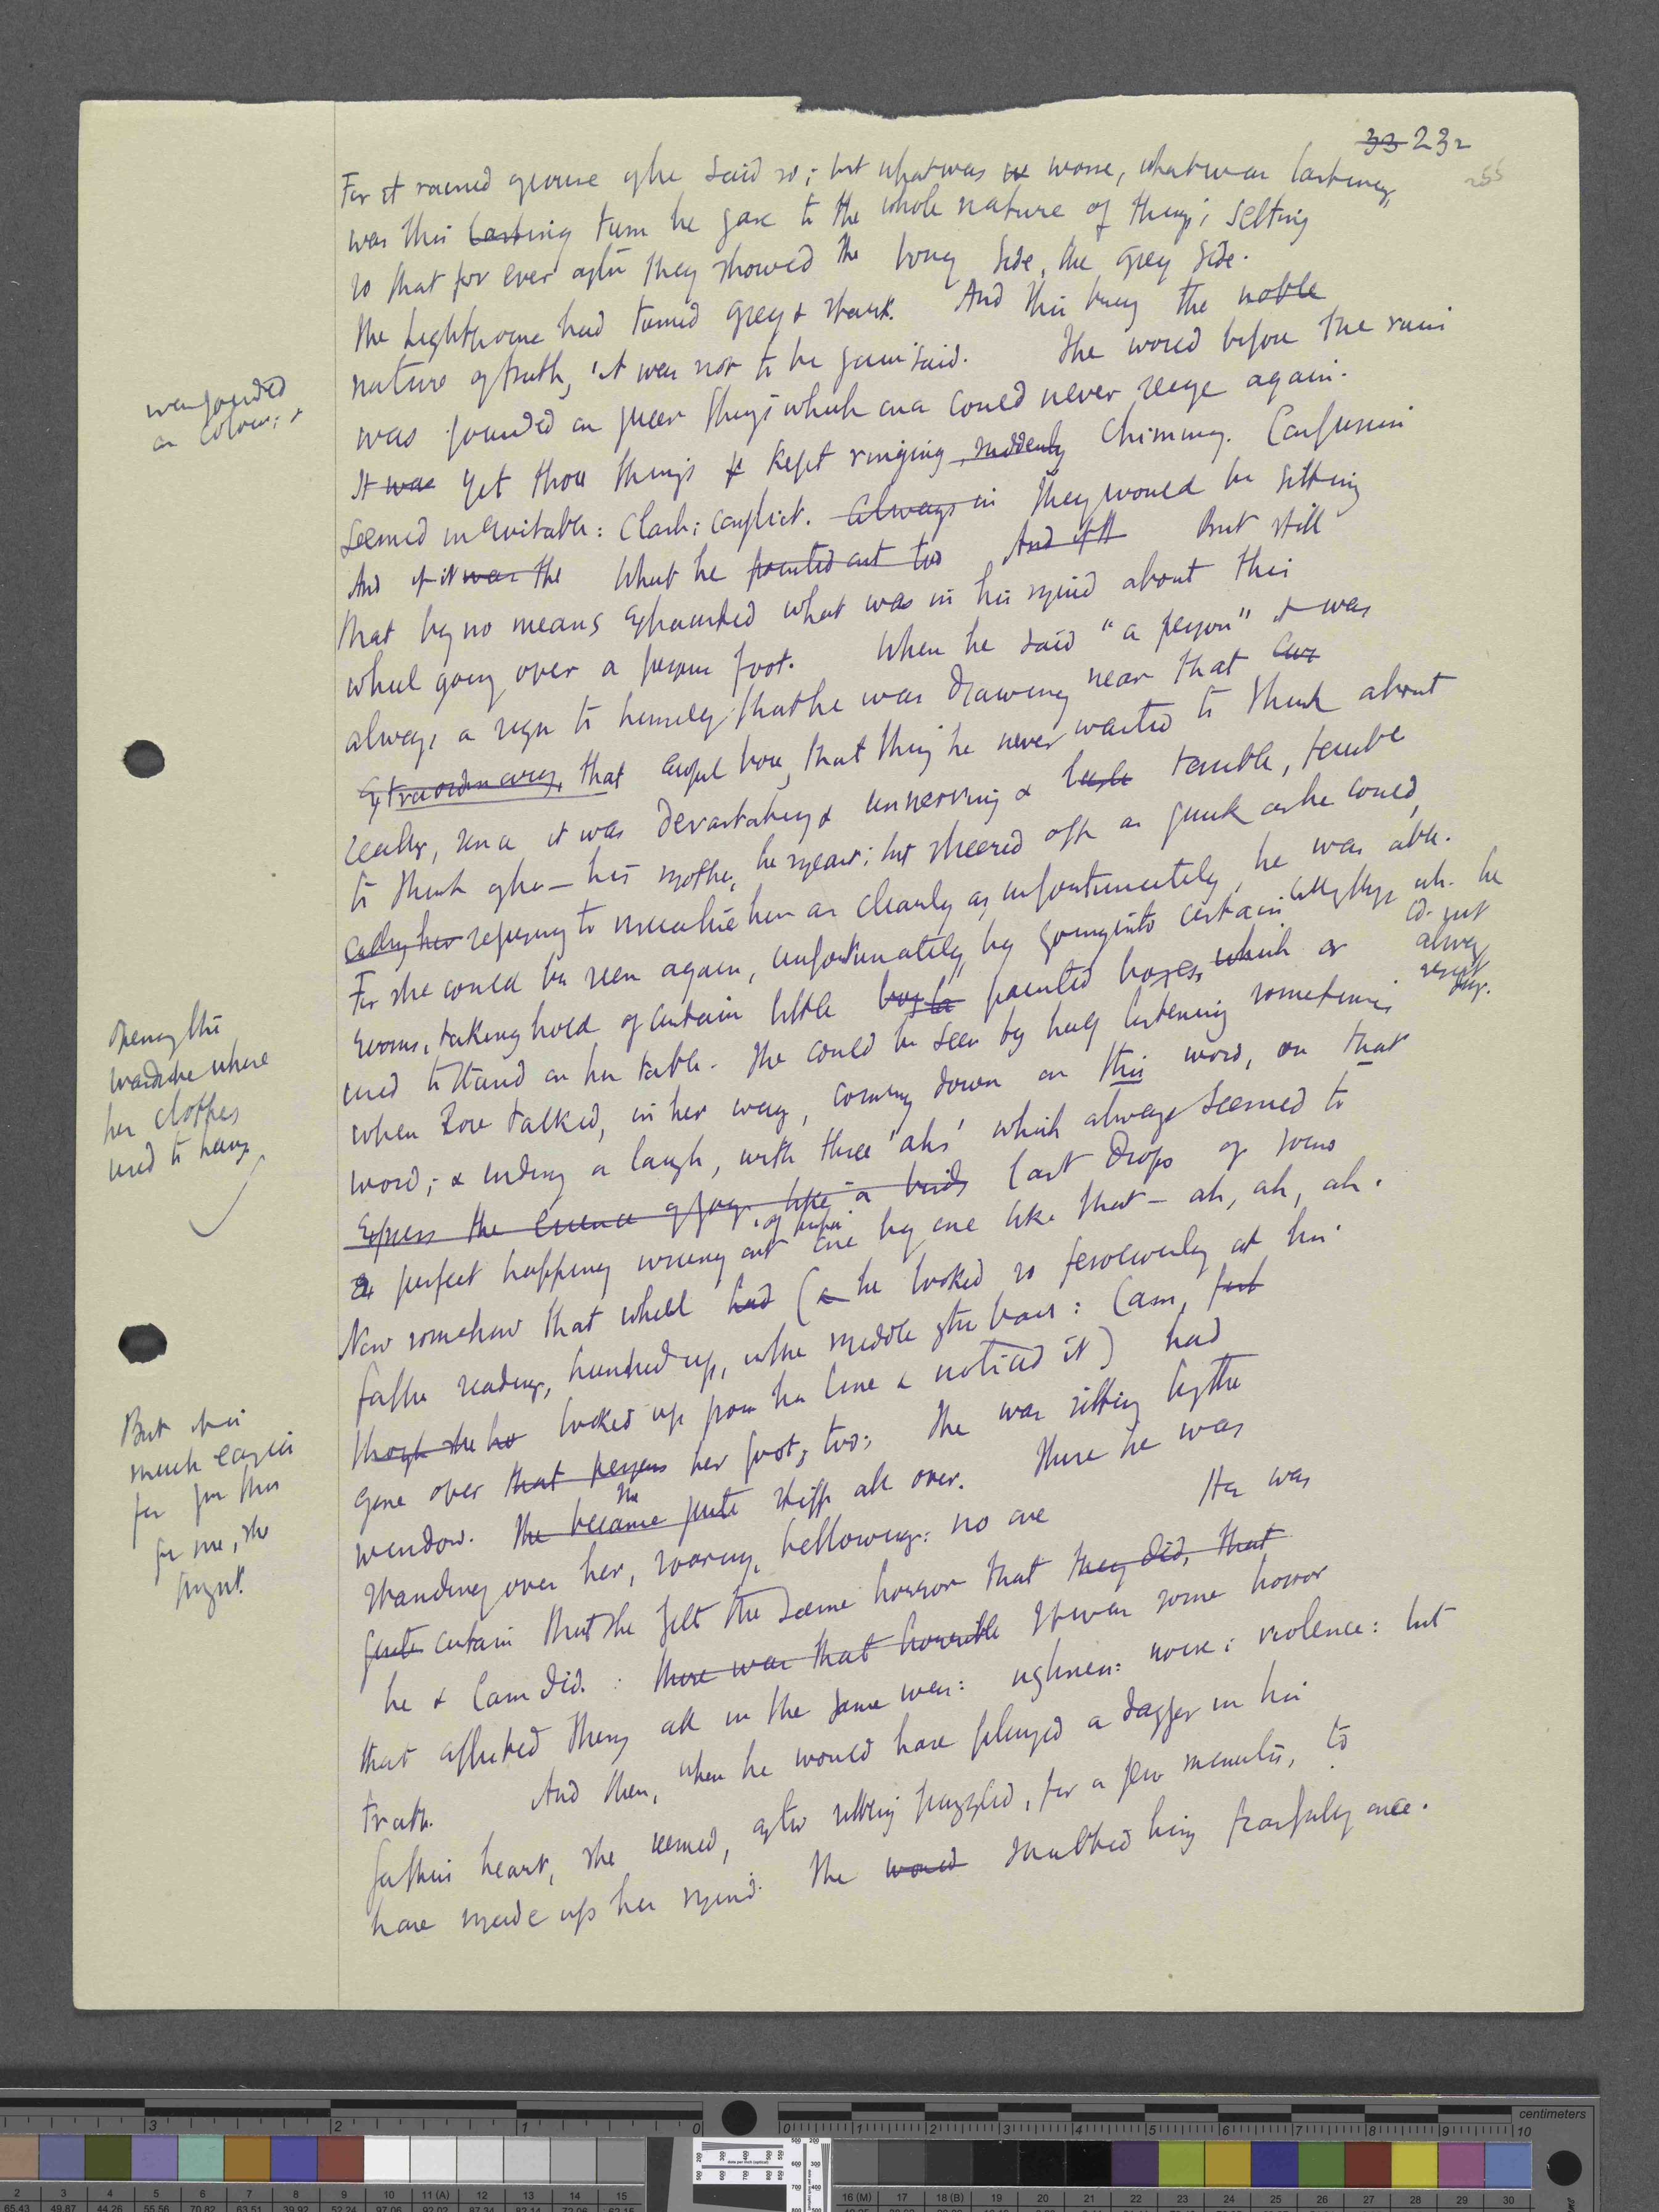 33 232
255
For it rained grouse if he said so; but what was we worse, what was lasting,
was this lasting turn he gave to the whole nature of things; setting
so that for ever after they showed the bony side, the grey side.
The Lighthouse had turned grey & stark. And this being the noble
nature of truth, it was not to be gainsaid. The world before the
was founded on queer things which one could never seize again.
was founded
on colour: &
It was Yet those things kept ringing, suddenly chiming. Confusion
seemed inevitable: clash: conflict. Always in They would be sitting
And if it was the What he pointed out two And if th But still
that by no means exhausted what was in his mind about this
wheel going over a persons foot. When he said "a person" it was
always a sign to himself that he was drawing near that
extraordinary, that awful box, that thing he never wanted to think about
really, since it was devastating & unnerving & terrible, terrible
to think of her — his mother, he meant; but sheered off as quick as he could,
calling her refusing to visualise her as clearly as, unfortunately, he was able.
For she could be seen again, unfortunately, by going into certain
wh. he
cd. not
always
resist
doing.
rooms, taking hold of certain little painted boxes, which or
used to stand on her table. She could be seen by half listening sometimes
opening the
wardrobe where
her clothes
used to hang
when Rose talked, in her way, coming down on this word, on that
word; & ending a laugh, with three 'ahs' which always seemed to
express the essence of joy, like a birds last drops of some
perfect happiness wrung out one by one like that — ah, ah, ah.
Now somehow that wheel had (he looked so ferociously at his
father reading, hunched up, in the middle of the boat: Cam,
though she looked up from her line & noticed it) had
But it is
much easier
for
for me, she
thought.
gone over that persons her foot, too; She was sitting by the
window. She became quite stiff all over. There he was
She
standing over her, roaring, bellowing: no one He was
quite certain that she felt the same horror that they did, that
he & Cam did. : There was that horrible It was some horror
that afflicted them all in the same way: ugliness: noise: violence: but
truth. And then, when he would have plunged a dagger in his
fathers heart, she seemed, after sitting puzzled, for a few minutes, to
have made up her mind. She would snubbed him frightfully once.
centimeters